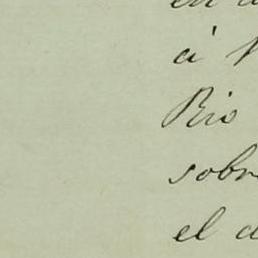 en
à
Rio
sobre
el